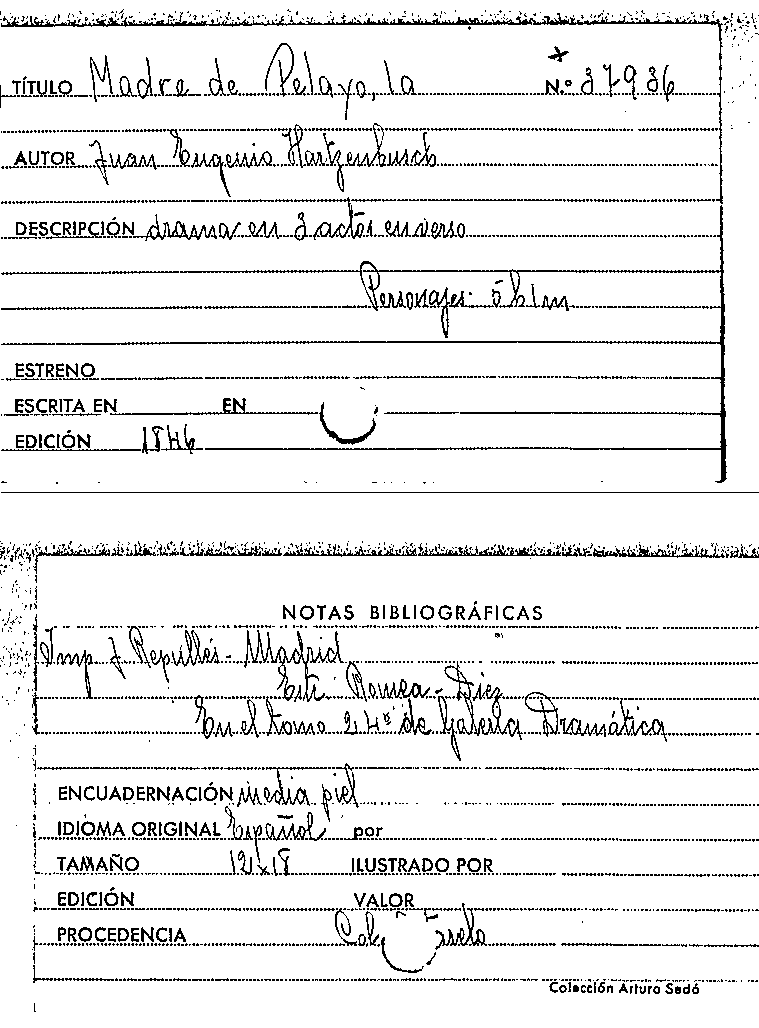 TÍTULO Madre de Pelayo, la N.º 37936
AUTOR Juan Eugenio Hartzenbusch
DESCRIPCIÓN drama en 3 actos en verso
Personajes: 5 h 1 m
ESTRENO
ESCRITA EN EN
EDICIÓN 1846
NOTAS BIBLIOGRÁFICAS
Imp J Repullés - Madrid
Romea - Diez
En el tomo 24º de Galería Dramática
ENCUADERNACIÓN media piel
IDIOMA ORIGINAL Español por
TAMAÑO 12x18 ILUSTRADO POR
EDICIÓN VALOR
PROCEDENCIA
Colección Arturo Sedó